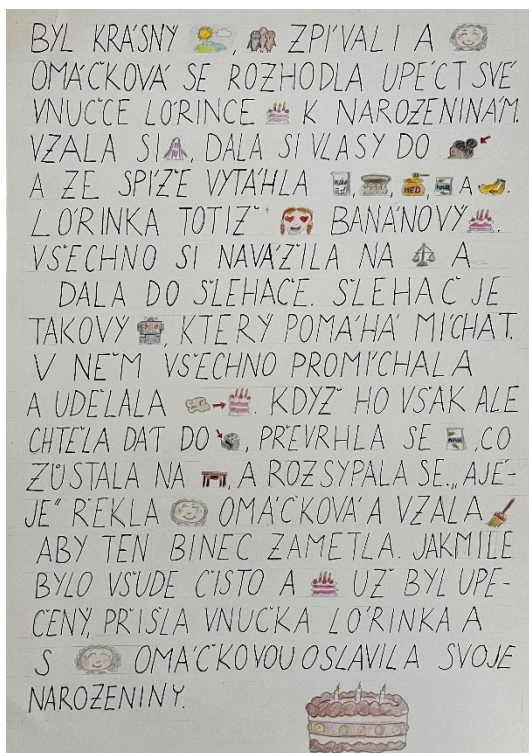 BYL KRÁSNÝ , ZPÍVALI A
OMÁČKOVÁ SE ROZHODLA UPÉCT SVÉ
VNUČCE LÓRINCE K NAROZENINÁM.
VZALA SI , DALA SI VLASY DO
A ZE SPÍŽE VYTÁHLA , , MED, A .
LÓRINKA TOTIŽ BANÁNOVÝ .
VŠECHNO SI NAVÁŽILA NA A
DALA DO ŠLEHAČE. ŠLEHAČ JE
TAKOVÝ , KTERÝ POMÁHÁ MÍCHAT.
V NĚM VŠECHNO PROMÍCHALA
A UDĚLALA . KDYŽ HO VŠAK ALE
CHTĚLA DÁT DO , PŘEVRHLA SE , CO
ZŮSTALA NA , A ROZSYPALA SE. „AJÉ-
JE" ŘEKLA OMÁČKOVÁ A VZALA
ABY TEN BINEC ZAMETLA. JAKMILE
BYLO VŠUDE ČISTO A UŽ BYL UPE-
ČENÝ, PŘIŠLA VNUČKA LÓRINKA A
S OMÁČKOVOU OSLAVILA SVOJE
NAROZENINY.